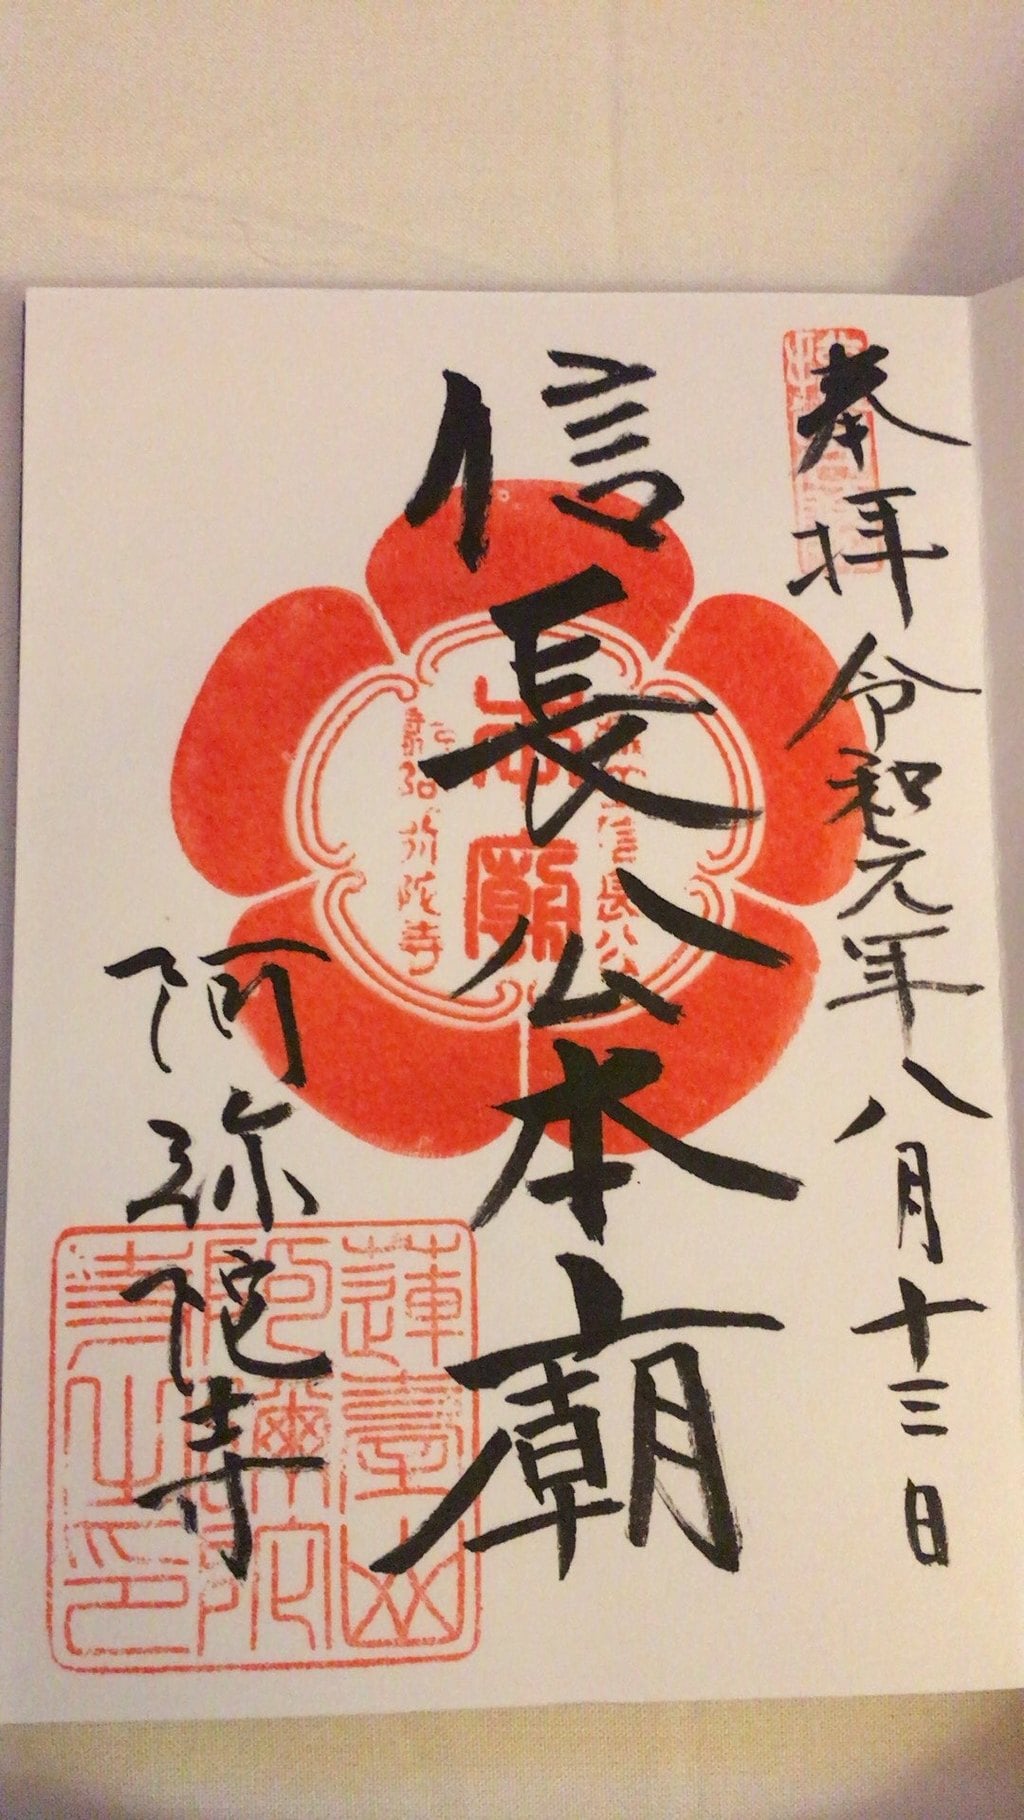 奉拝 令和元年八月十三日
信長公本廟
阿弥陀寺
本廟
信長公
阿弥陀寺
蓮臺山
阿彌陀
寺之印